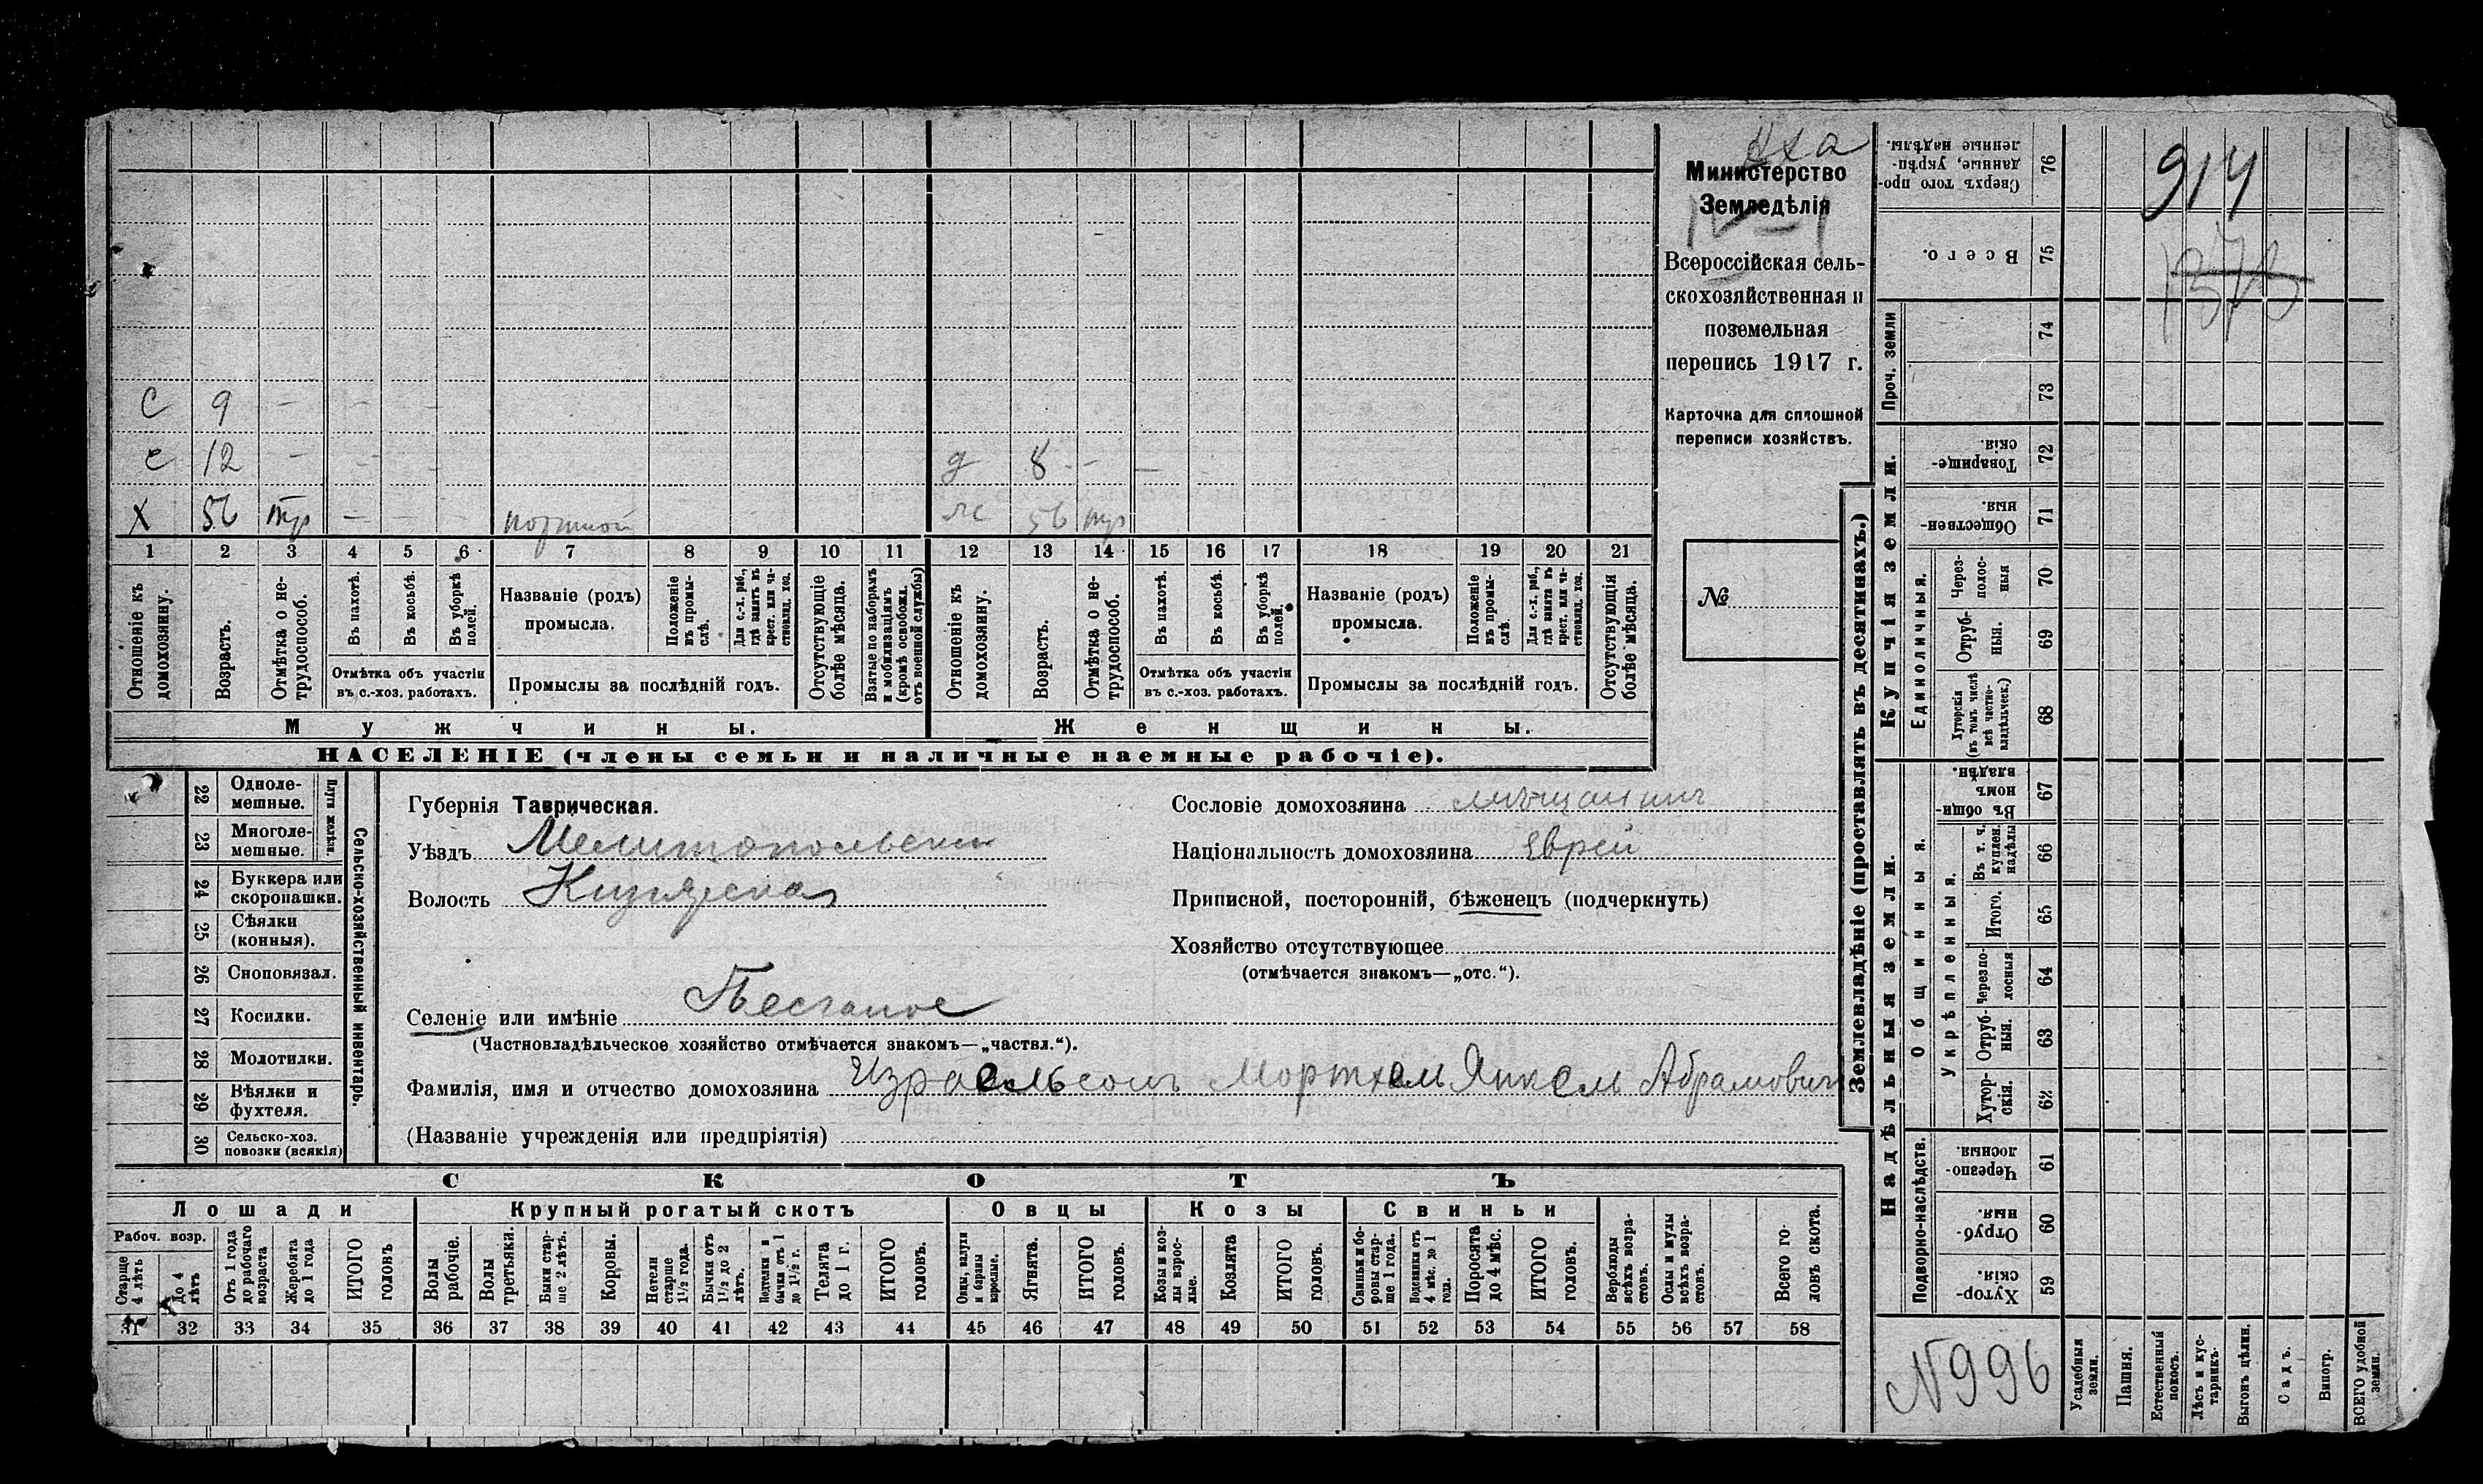 Министерство
Земледѣлія
Всероссійская сель-
скохозяйственная и
поземельная
перепись 1917 г.
Карточка для сплошной
переписи хозяйствъ.
№
С 9 – – –
с 12 – – –
д 8 – –
Х 56 тр – портной
ж 56 тр
1 2 3 4 5 6 7 8 9 10 11 12 13 14 15 16 17 18 19 20 21
Отношеніе къ домохозяину.
Возрастъ.
Отмѣтка о не-трудоспособ.
Въ пахотѣ.
Въ косьбѣ.
Въ уборкѣ полей.
Отмѣтка объ участіи
въ с.-хоз. работахъ.
Названіе (родъ)
промысла.
Положеніе въ промы-слѣ.
Для с.-х. раб., гдѣ занятъ въ крест. или ча-ствовлад. хоз.
Промыслы за послѣдній годъ.
Отсутствующіе болѣе мѣсяца.
Взятые по наборамъ и мобилизаціямъ (кромѣ освобожд. отъ военной службы)
Отношеніе къ домохозяину.
Возрастъ.
Отмѣтка о не-трудоспособ.
Въ пахотѣ.
Въ косьбѣ.
Въ уборкѣ полей.
Отмѣтка объ участіи
въ с.-хоз. работахъ.
Названіе (родъ)
промысла.
Положеніе въ промы-слѣ.
Для с.-х. раб., гдѣ занята въ крест. или ча-ствовлад. хоз.
Промыслы за послѣдній годъ.
Отсутствующія болѣе мѣсяца.
Мужчины.
Женщины.
НАСЕЛЕНІЕ (члены семьи и наличные наемные рабочіе).
Сельско-хозяйственный инвентарь.
Плуги желѣзн.
22 Одноле-мешные.
23 Многоле-мешные.
24 Буккера или скоропашки.
25 Сѣялки (конныя).
26 Сноповязал.
27 Косилки.
28 Молотилки.
29 Вѣялки и фухтеля.
30 Сельско-хоз. повозки (всякія)
Губернія Таврическая.
Уѣздъ Мелитопольскій
Волость
Сословіе домохозяина мѣщанинъ
Національность домохозяина Еврей
Приписной, посторонній, бѣженецъ (подчеркнуть)
Хозяйство отсутствующее
(отмѣчается знакомъ—„отс.“).
Селеніе или имѣніе Песчаное
(Частновладѣльческое хозяйство отмѣчается знакомъ—„частвл.“).
Фамилія, имя и отчество домохозяина Израельсонъ Мортхель Янкель Абрамовичъ
(Названіе учрежденія или предпріятія)
СКОТЪ
Лошади
Крупный рогатый скотъ
Овцы
Козы
Свиньи
Рабоч. возр.
Старше 4 лѣтъ
До 4 лѣтъ
Отъ 1 года до рабочаго возраста
Жеребята до 1 года
ИТОГО головъ
Волы рабочіе.
Волы третьяки.
Быки стар-ше 2 лѣтъ.
Коровы.
Нетели старше 1½ года.
Бычки отъ 1½ до 2 лѣтъ.
Подтелки и бычки отъ 1 до 1½ г.
Телята до 1 г.
ИТОГО головъ.
Овцы, валухи и бараны взрослые.
Ягнята.
ИТОГО головъ.
Козы и коз-лы взрос-лые.
Козлята
ИТОГО головъ.
Свиньи и бо-ровы стар-ше 1 года.
Подсвинки отъ 4 мѣс. до 1 года.
Поросята до 4 мѣс.
ИТОГО головъ.
Верблюды всѣхъ возра-стовъ.
Ослы и мулы всѣхъ возра-стовъ.
Всего го-ловъ скота.
31 32 33 34 35 36 37 38 39 40 41 42 43 44 45 46 47 48 49 50 51 52 53 54 55 56 57 58
Землевладѣніе (проставлять въ десятинахъ.)
914
1373
76 Сверхъ того про-данные, укрѣп-ленные надѣлы.
75 Всего.
Проч. земли
74
73
Купчія земли.
72 Товарище-скія.
71 Обществен-ныя.
Единоличныя.
70 Через-полос-ныя
69 Отруб-ныя.
68 Хуторскія (въ томъ числѣ всѣ частно-владѣльческ.)
Надѣльныя земли.
Общинныя.
67 Въ общи-номъ владѣн.
Укрѣпленныя.
66 Въ т. ч. куплен. надѣлы
65 Итого.
64 Черезпо-лосныя
63 Отруб-ныя.
62 Хутор-скія.
Подворно-наслѣдств.
61 Черезпо-лосныя.
60 Отруб-ныя.
59 Хутор-скія.
N 996
Усадебныя земли.
Пашня.
Естественный покосъ.
Лѣсъ и кус-тарникъ.
Выгонъ цѣлин.
Садъ.
Виногр.
ВСЕГО удобной земли.